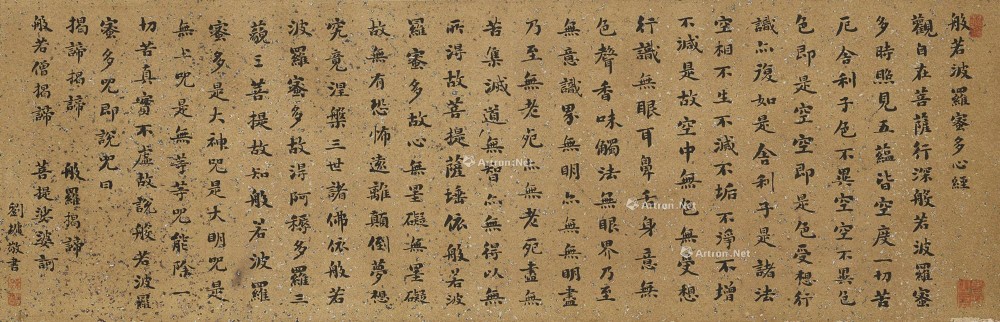 般若波羅蜜多心經
觀自在菩薩行深般若波羅蜜
多時照見五蘊皆空度一切苦
厄舍利子色不異空空不異色
色即是空空即是色受想行
識亦復如是舍利子是諸法
空相不生不滅不垢不淨不增
不減是故空中無色無受想
行識無眼耳鼻舌身意無
色聲香味觸法無眼界乃至
無意識界無無明亦無無明盡
乃至無老死亦無老死盡無
苦集滅道無智亦無得以無
所得故菩提薩埵依般若波
羅蜜多故心無罣礙無罣礙
故無有恐怖遠離顛倒夢想
究竟涅槃三世諸佛依般若
波羅蜜多故得阿耨多羅三
藐三菩提故知般若波羅
蜜多是大神咒是大明咒是
無上咒是無等等咒能除一
切苦真實不虛故說般若波羅
蜜多咒即說咒曰
揭諦揭諦 般羅揭諦
般若僧揭諦 菩提娑婆訶
劉墉敬書
Artron.Net
Artron.Net
Artron.Net